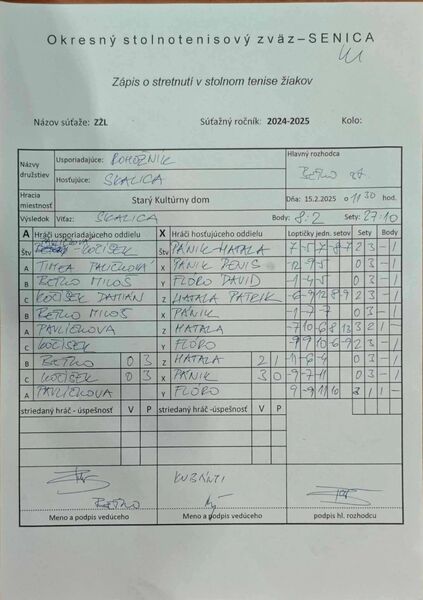 Okresný stolnotenisový zväz – SENICA
Zápis o stretnutí v stolnom tenise žiakov
Názov súťaže: ZŽL Súťažný ročník: 2024-2025 Kolo:
Názvy družstiev Usporiadajúce: ROHOŽNÍK Hlavný rozhodca
Hosťujúce: SKALICA BETKO
Hracia miestnosť Starý Kultúrny dom Dňa: 15.2.2025 o 11 30 hod.
Výsledok Víťaz: SKALICA Body: 8:2 Sety: 27:10
A Hráči usporiadajúceho oddielu X Hráči hosťujúceho oddielu Loptičky jedn. setov Sety Body
Štv KOČIŠEK Štv PÁNIK HATALA 7 -5 7 -8 -7 2 3 - 1
A TIMEA PAVLÍČKOVÁ X PÁNIK DENIS -12 -9 -5 0 3 - 1
B BETKO MILOŠ Y FLORO DAVID -1 -4 -5 0 3 - 1
C KOČIŠEK DAMIÁN Z HATALA PATRIK 2 3 - 1
B BETKO MILOŠ X PÁNIK -1 -7 -7 0 3 - 1
A PAVLÍČKOVA Z HATALA -7 10 -6 8 13 3 2 1 -
C KOČIŠEK Y FLORO 2 3 - 1
B BETKO 0 3 Z HATALA 2 1 -11 -6 -4 0 3 - 1
C KOČIŠEK 0 3 X PÁNIK 3 0 -9 -7 -11 0 3 - 1
A PAVLÍČKOVA Y FLORO 9 -9 11 10 3 1 1 -
striedaný hráč - úspešnosť V P striedaný hráč -úspešnosť V P
KUBÁNTI
BETKO
Meno a podpis vedúceho Meno a podpis vedúceho podpis hl. rozhodcu